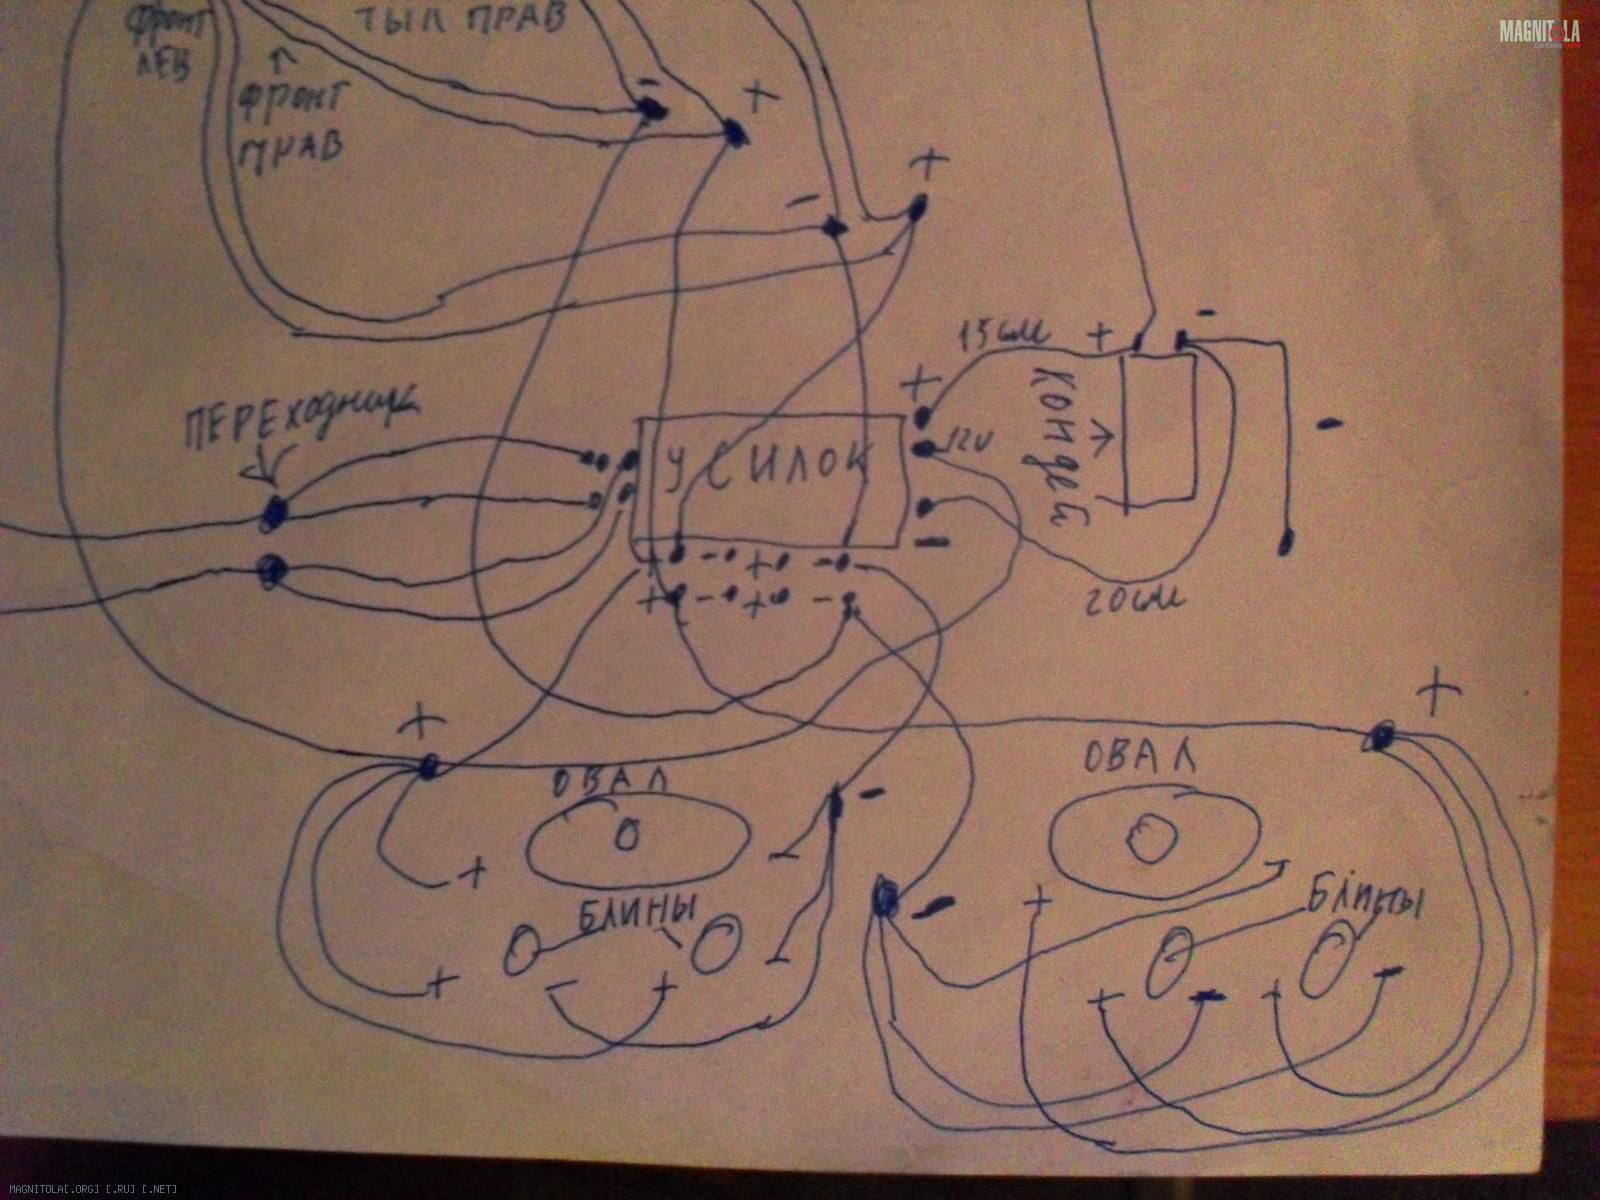 ФРОНТ
ЛЕВ
ТЫЛ ПРАВ
ФРОНТ
ПРАВ
MAGNITOLA
-
+
+
-
15 см
+
-
ПЕРЕХОДНИК
+
12V
УСИЛОК
КОНДЕЙ
-
-
+ - + -
+ - + -
20 см
+
+
ОВАЛ
-
ОВАЛ
+
-
-
+
-
БЛИНЫ
БЛИНЫ
+
-
+
-
+
-
+
-
MAGNITOLA[.ORG] [.RU] [.NET]